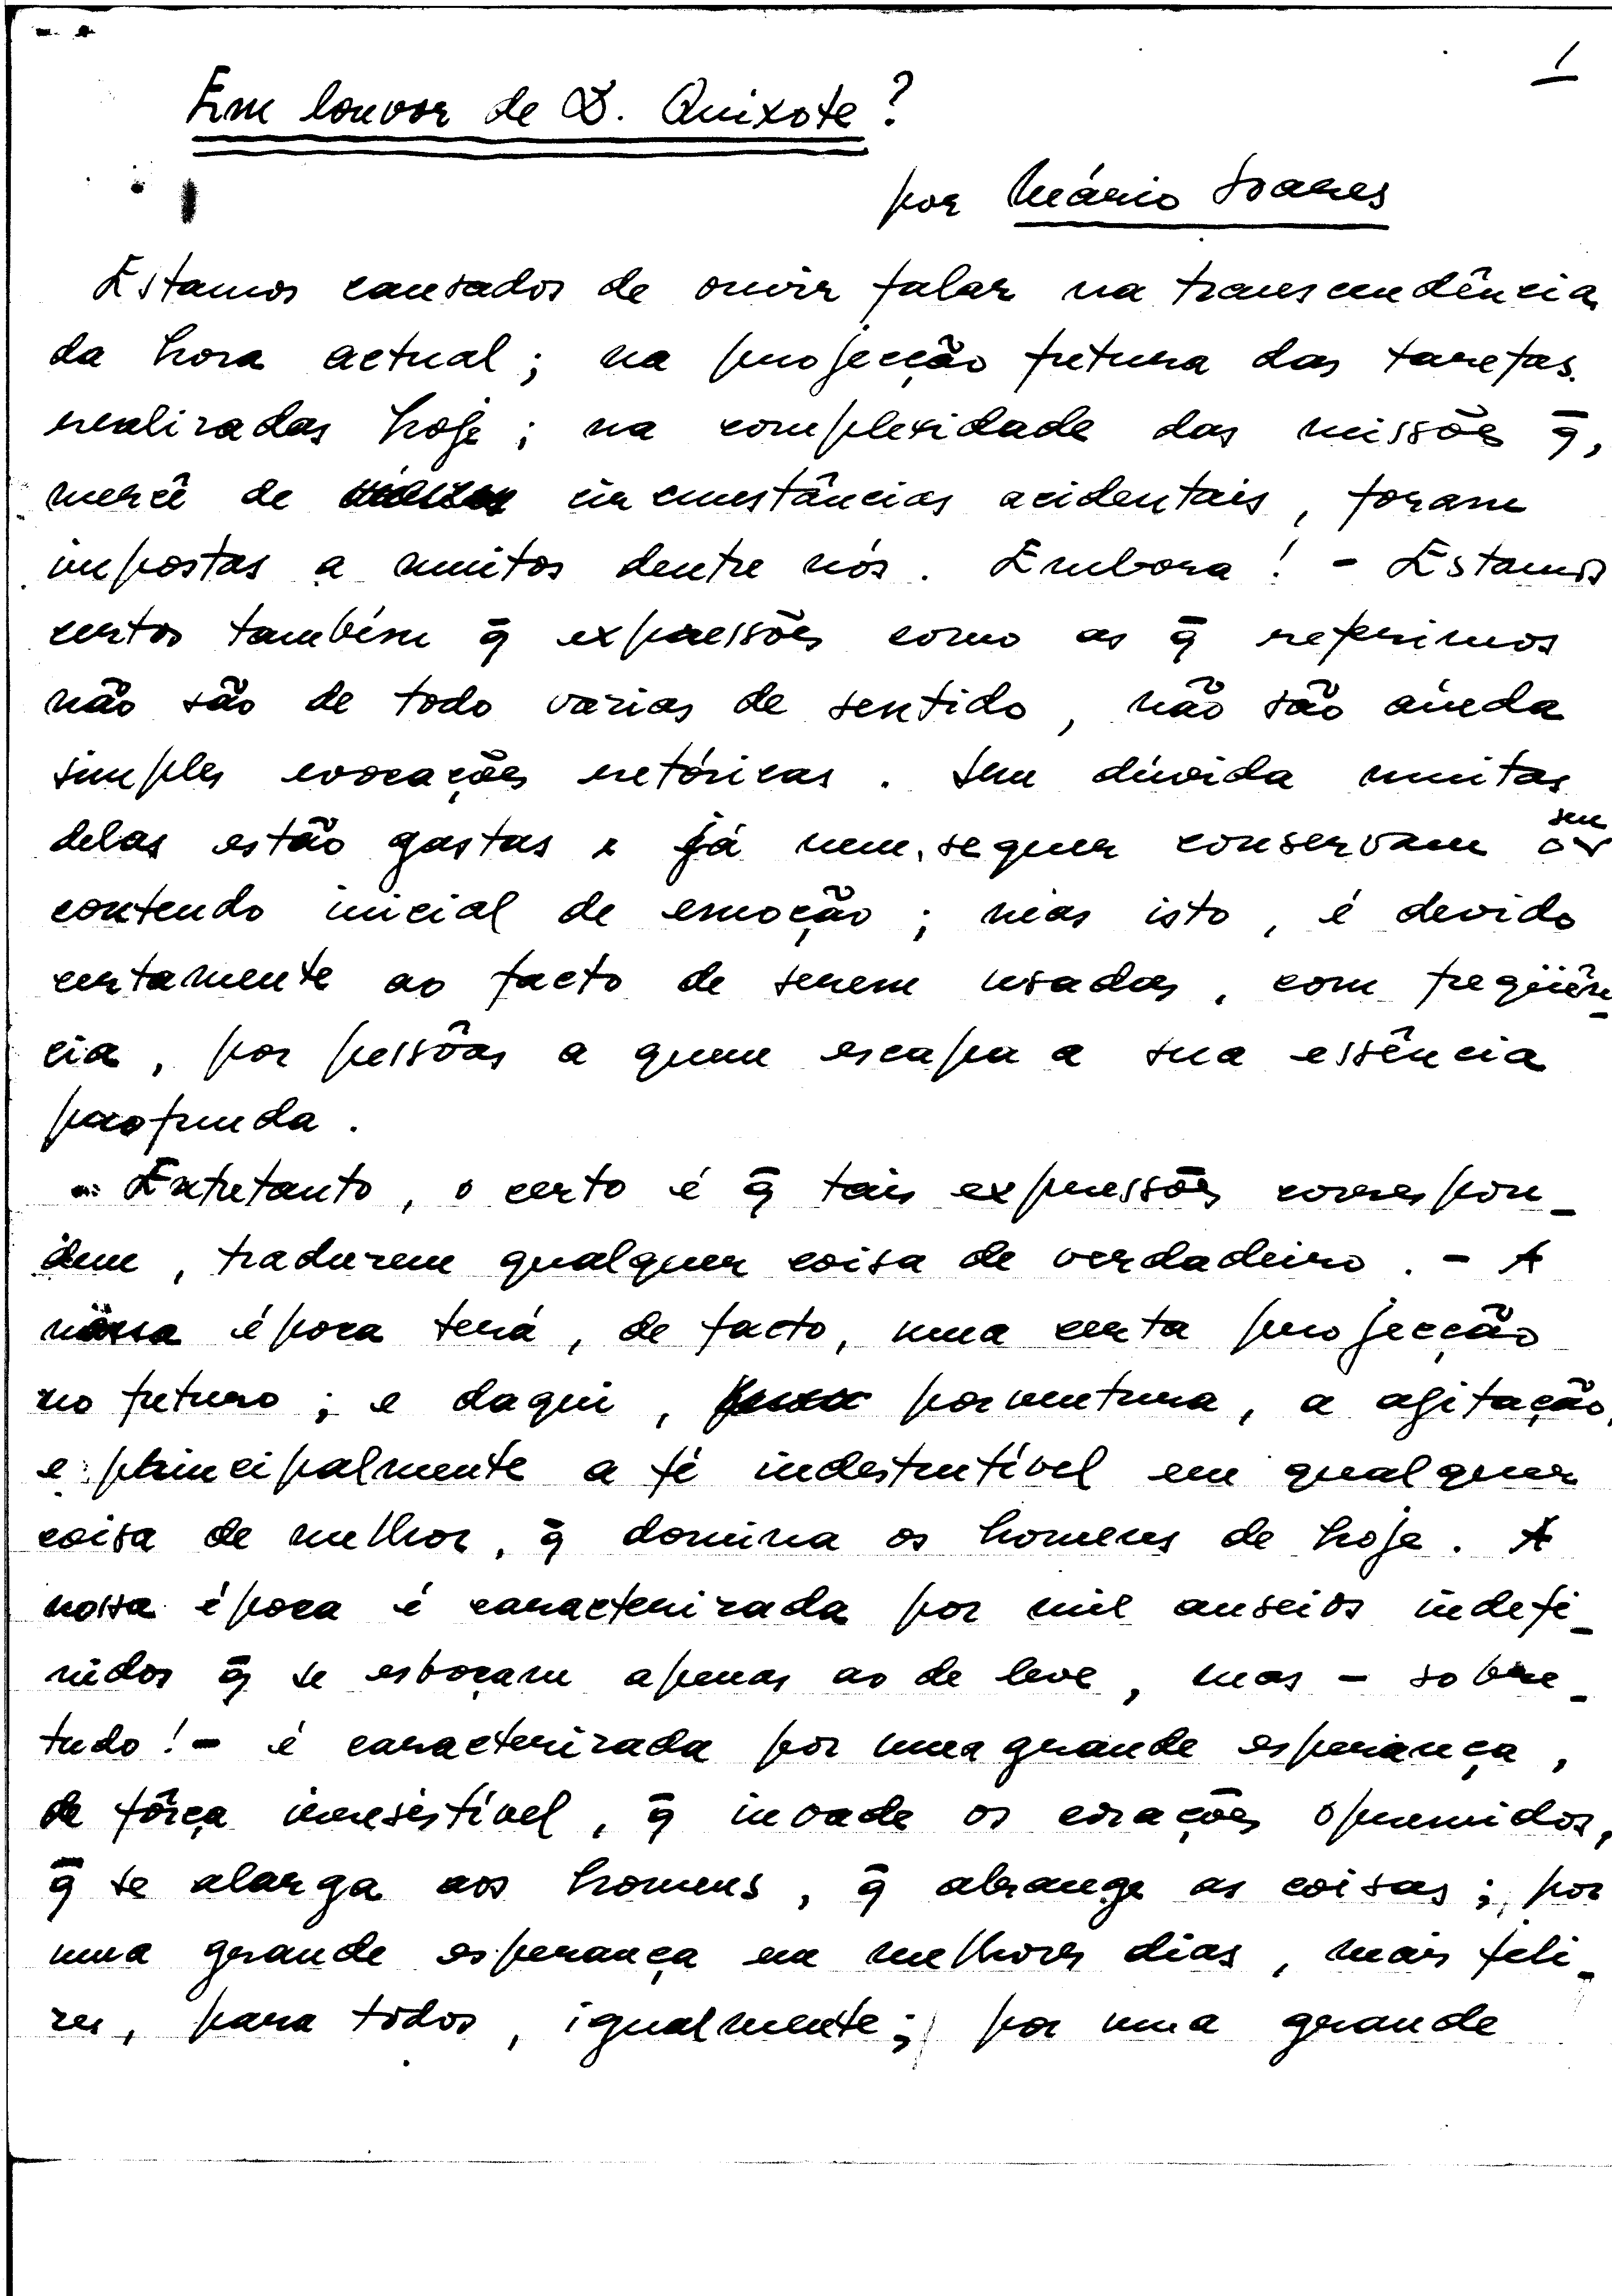 1
Em louvor de D. Quixote?
por Mário Soares
Estamos cansados de ouvir falar na transcendência
da hora actual; na projecção futura das tarefas
realizadas hoje; na complexidade das missões q̄,
mercê de circunstâncias acidentais, foram
impostas a muitos dentre nós. Embora! - Estamos
certos também q̄ expressões como as q̄ referimos
não são de todo vazias de sentido, não são ainda
simples evocações retóricas. Sem dúvida muitas
delas estão gastas e já nem sequer conservam seu
conteudo inicial de emoção; mas isto, é devido
certamente ao facto de serem usadas, com freqüên-
cia, por pessôas a quem escapa a sua essência
profunda.
Entretanto, o certo é q̄ tais expressões correspon-
dem, traduzem qualquer coisa de verdadeiro. - A
nossa época terá, de facto, uma certa projecção
no futuro; e daqui, porventura, a agitação,
e principalmente a fé indestrutível em qualquer
coisa de melhor, q̄ domina os homens de hoje. A
nossa época é caracterizada por mil anseios indefi-
nidos q̄ se esboçam apenas ao de leve, mas - sobre-
tudo! - é caracterizada por uma grande esperança,
de fôrça irresistível, q̄ invade os corações oprimidos,
q̄ se alarga aos homens, q̄ abrange as coisas; por
uma grande esperança em melhores dias, mais feli-
zes, para todos, igualmente; por uma grande